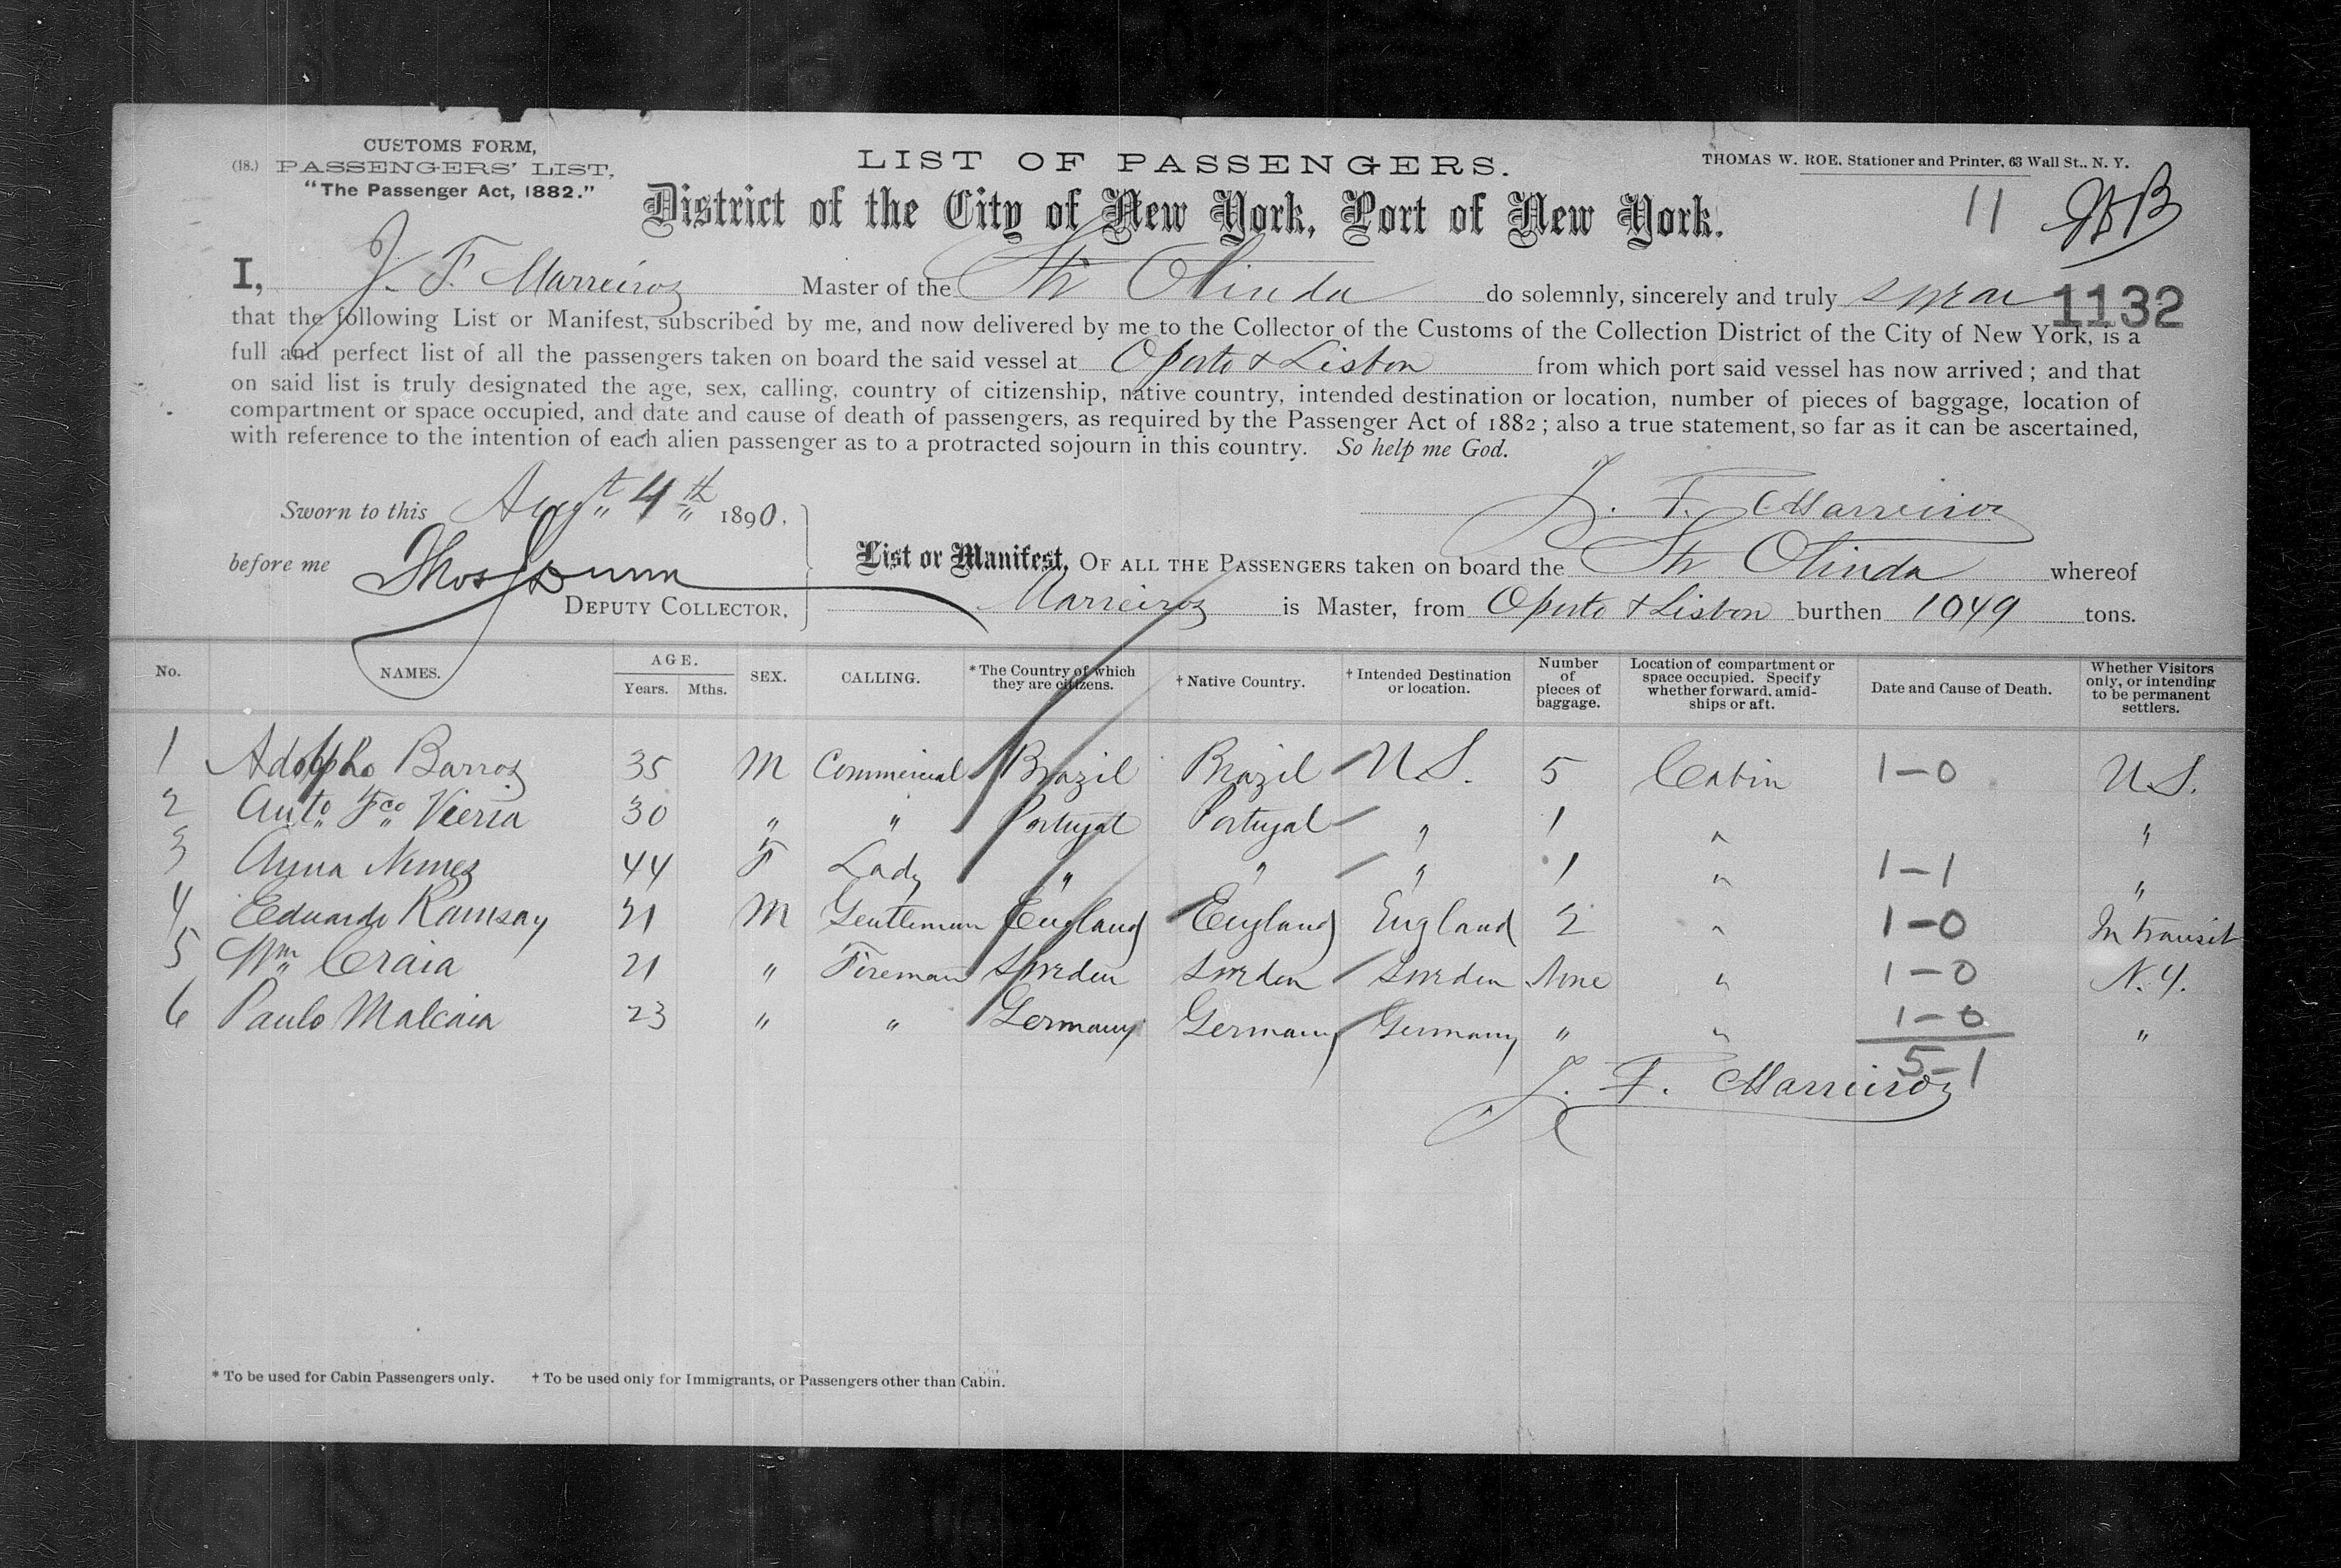 CUSTOMS FORM,
(18.) PASSENGERS' LIST,
"The Passenger Act, 1882."
LIST OF PASSENGERS.
THOMAS W. ROE, Stationer and Printer, 63 Wall St., N. Y.
District of the City of New York, Port of New York.
11
I, J. F. Marreiroz Master of the Str Olinda do solemnly, sincerely and truly swear
1132
that the following List or Manifest, subscribed by me, and now delivered by me to the Collector of the Customs of the Collection District of the City of New York, is a
full and perfect list of all the passengers taken on board the said vessel at Oporto & Lisbon from which port said vessel has now arrived; and that
on said list is truly designated the age, sex, calling, country of citizenship, native country, intended destination or location, number of pieces of baggage, location of
compartment or space occupied, and date and cause of death of passengers, as required by the Passenger Act of 1882; also a true statement, so far as it can be ascertained,
with reference to the intention of each alien passenger as to a protracted sojourn in this country. So help me God.
Sworn to this Augt 4th 1890,
J. F. Marreiroz
before me Thos Dunn
DEPUTY COLLECTOR.
List or Manifest, OF ALL THE PASSENGERS taken on board the Str Olinda whereof
Marreiroz is Master, from Oporto & Lisbon burthen 1049 tons.
No. NAMES. AGE. Years. Mths. SEX. CALLING. * The Country of which they are citizens. † Native Country. † Intended Destination or location. Number of pieces of baggage. Location of compartment or space occupied. Specify whether forward, amidships or aft. Date and Cause of Death. Whether Visitors only, or intending to be permanent settlers.
1 Adolpho Barros 35 M Commercial Brazil Brazil U S. 5 Cabin 1-0 U S.
2 Anto Fco Vieria 30 " " Portugal Portugal " 1 " "
3 Anna Nunes 44 F Lady " " " 1 " 1-1 "
4 Eduardo Ramsay 21 M Gentleman England England England 2 " 1-0 In transit
5 Wm Craia 21 " Fireman Sweden Sweden Sweden None " 1-0 N. Y.
6 Paulo Malcaia 23 " " Germany Germany Germany " " 1-0 "
5-1
J. F. Marreiroz
* To be used for Cabin Passengers only. † To be used only for Immigrants, or Passengers other than Cabin.